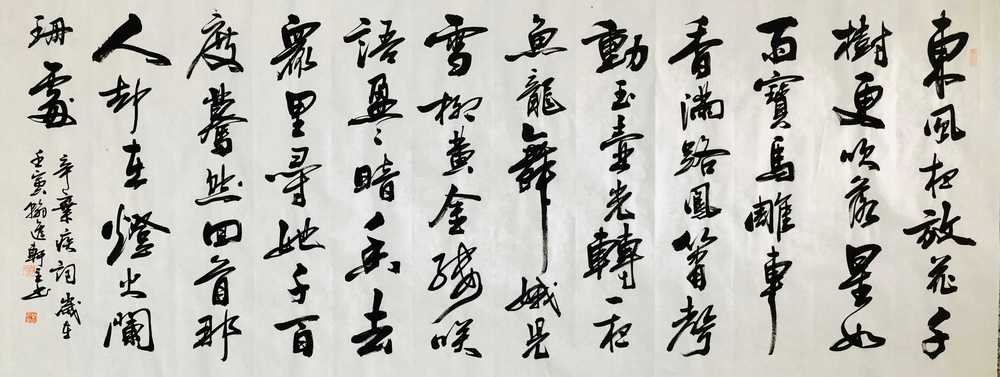 東風夜放花千
樹更吹落星如
雨寶馬雕車
香滿路鳳簫聲
動玉壺光轉一夜
魚龍舞娥兒
雪柳黃金縷咲
語盈〻暗香去
眾里尋她千百
度驀然回首那
人却在燈火闌
珊處
辛棄疾詞歲在
壬寅翰逸軒主